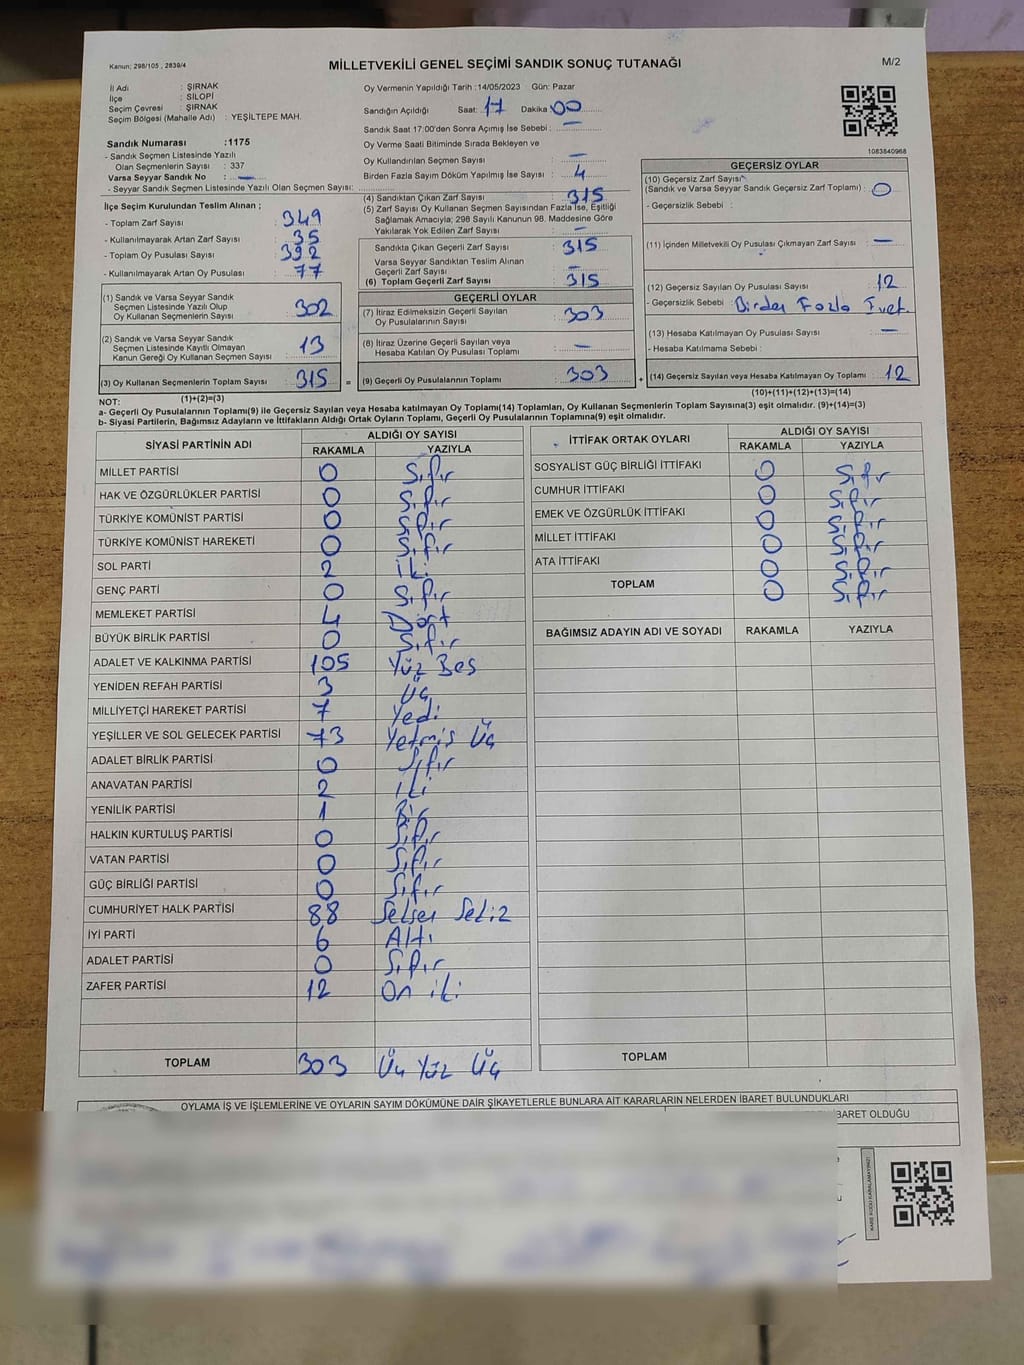 Kanun: 298/105 , 2839/4
MİLLETVEKİLİ GENEL SEÇİMİ SANDIK SONUÇ TUTANAĞI
M/2
İl Adı : ŞIRNAK
İlçe : SİLOPİ
Seçim Çevresi : ŞIRNAK
Seçim Bölgesi (Mahalle Adı) : YEŞİLTEPE MAH.
Sandık Numarası :1175
- Sandık Seçmen Listesinde Yazılı
Olan Seçmenlerin Sayısı : 337
Varsa Seyyar Sandık No : —
- Seyyar Sandık Seçmen Listesinde Yazılı Olan Seçmen Sayısı:
Oy Vermenin Yapıldığı Tarih :14/05/2023 Gün: Pazar
Sandığın Açıldığı Saat: 17 Dakika 00
Sandık Saat 17:00'den Sonra Açımış İse Sebebi : —
Oy Verme Saati Bitiminde Sırada Bekleyen ve
Oy Kullandırılan Seçmen Sayısı : —
Birden Fazla Sayım Döküm Yapılmış İse Sayısı : 4
1083840968
İlçe Seçim Kurulundan Teslim Alınan ;
- Toplam Zarf Sayısı : 349
- Kullanılmayarak Artan Zarf Sayısı : 35
- Toplam Oy Pusulası Sayısı : 392
- Kullanılmayarak Artan Oy Pusulası : 77
(1) Sandık ve Varsa Seyyar Sandık
Seçmen Listesinde Yazılı Olup
Oy Kullanan Seçmenlerin Sayısı : 302
(2) Sandık ve Varsa Seyyar Sandık
Seçmen Listesinde Kayıtlı Olmayan
Kanun Gereği Oy Kullanan Seçmen Sayısı : 13
(3) Oy Kullanan Seçmenlerin Toplam Sayısı : 315 =
(1)+(2)=(3)
(4) Sandıktan Çıkan Zarf Sayısı : 315
(5) Zarf Sayısı Oy Kullanan Seçmen Sayısından Fazla İse, Eşitliği
Sağlamak Amacıyla; 298 Sayılı Kanunun 98. Maddesine Göre
Yakılarak Yok Edilen Zarf Sayısı : —
Sandıkta Çıkan Geçerli Zarf Sayısı : 315
Varsa Seyyar Sandıktan Teslim Alınan
Geçerli Zarf Sayısı : —
(6) Toplam Geçerli Zarf Sayısı : 315
GEÇERLİ OYLAR
(7) İtiraz Edilmeksizin Geçerli Sayılan
Oy Pusulalarının Sayısı : 303
(8) İtiraz Üzerine Geçerli Sayılan veya
Hesaba Katılan Oy Pusulası Toplamı : —
(9) Geçerli Oy Pusulalarının Toplamı : 303 +
GEÇERSİZ OYLAR
(10) Geçersiz Zarf Sayısı
(Sandık ve Varsa Seyyar Sandık Geçersiz Zarf Toplamı) : 0
- Geçersizlik Sebebi :
(11) İçinden Milletvekili Oy Pusulası Çıkmayan Zarf Sayısı : —
(12) Geçersiz Sayılan Oy Pusulası Sayısı : 12
- Geçersizlik Sebebi : Birden Fazla Evet.
(13) Hesaba Katılmayan Oy Pusulası Sayısı : —
- Hesaba Katılmama Sebebi :
(14) Geçersiz Sayılan veya Hesaba Katılmayan Oy Toplamı : 12
(10)+(11)+(12)+(13)=(14)
NOT:
a- Geçerli Oy Pusulalarının Toplamı(9) ile Geçersiz Sayılan veya Hesaba katılmayan Oy Toplamı(14) Toplamları, Oy Kullanan Seçmenlerin Toplam Sayısına(3) eşit olmalıdır. (9)+(14)=(3)
b- Siyasi Partilerin, Bağımsız Adayların ve İttifakların Aldığı Ortak Oyların Toplamı, Geçerli Oy Pusulalarının Toplamına(9) eşit olmalıdır.
SİYASİ PARTİNİN ADI ALDIĞI OY SAYISI
RAKAMLA YAZIYLA
MİLLET PARTİSİ 0 Sıfır
HAK VE ÖZGÜRLÜKLER PARTİSİ 0 Sıfır
TÜRKİYE KOMÜNİST PARTİSİ 0 Sıfır
TÜRKİYE KOMÜNİST HAREKETİ 0 Sıfır
SOL PARTİ 2 iki
GENÇ PARTİ 0 Sıfır
MEMLEKET PARTİSİ 4 Dört
BÜYÜK BİRLİK PARTİSİ 0 Sıfır
ADALET VE KALKINMA PARTİSİ 105 Yüz Beş
YENİDEN REFAH PARTİSİ 3 Üç
MİLLİYETÇİ HAREKET PARTİSİ 7 Yedi
YEŞİLLER VE SOL GELECEK PARTİSİ 73 Yetmis Üç
ADALET BİRLİK PARTİSİ 0 Sıfır
ANAVATAN PARTİSİ 2 iki
YENİLİK PARTİSİ 1 Bir
HALKIN KURTULUŞ PARTİSİ 0 Sıfır
VATAN PARTİSİ 0 Sıfır
GÜÇ BİRLİĞİ PARTİSİ 0 Sıfır
CUMHURİYET HALK PARTİSİ 88 Seksen Sekiz
İYİ PARTİ 6 Altı
ADALET PARTİSİ 0 Sıfır
ZAFER PARTİSİ 12 On iki
TOPLAM 303 Üç Yüz Üç
İTTİFAK ORTAK OYLARI ALDIĞI OY SAYISI
RAKAMLA YAZIYLA
SOSYALİST GÜÇ BİRLİĞİ İTTİFAKI 0 Sıfır
CUMHUR İTTİFAKI 0 Sıfır
EMEK VE ÖZGÜRLÜK İTTİFAKI 0 Sıfır
MİLLET İTTİFAKI 0 Sıfır
ATA İTTİFAKI 0 Sıfır
TOPLAM 0 Sıfır
BAĞIMSIZ ADAYIN ADI VE SOYADI RAKAMLA YAZIYLA
TOPLAM
OYLAMA İŞ VE İŞLEMLERİNE VE OYLARIN SAYIM DÖKÜMÜNE DAİR ŞİKAYETLERLE BUNLARA AİT KARARLARIN NELERDEN İBARET BULUNDUKLARI
İBARET OLDUĞU